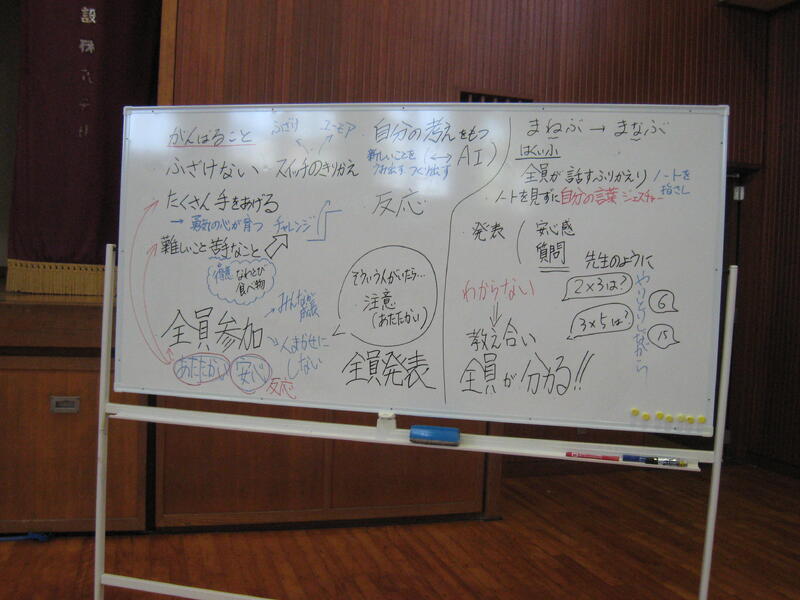 がんばること
ふざけない スイッチのきりかえ
ふざけ
ユーモア
たくさん手をあげる
→ 勇気の心が育つ チャレンジ
難しいこと 苦手なこと
なわとび
食べ物
全員参加
みんなが
人まかせに
しない
あたたかい 安心
反応
自分の考えをもつ
新しいことを
つくり出す
(←→ AI)
反応
そういう人がいたら…
注意
(あたたかい)
全員発表
まねぶ → まなぶ
はくいふ
全員が話すふりかえり
ノートを
指さし
・ノートを見ずに自分の言葉 ジェスチャー
・発表
安心感
質問
先生のように
わからない
2×3は?
6
3×5は?
15
やりとりしながら
教え合い
全員が分かる!!